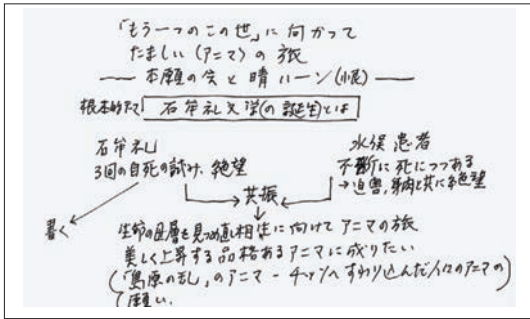 「もう一つのこの世」に向かって
たましい〈アニマ〉の旅
── 本願の会と晴ハーン(恨) ──
根本的テーマ 石牟礼文学(の誕生)とは
石牟礼
3回の自死の試み、絶望
水俣患者
不断に死につつある
→迫害,身内と共に絶望
共振
書く
生命の母層を見つめ直し相生に向けてアニマの旅
美しく上昇する品格あるアニマに成りたい
(「島原の乱」のアニマ ー チッソへすわり込んだ人々のアニマの
願い.